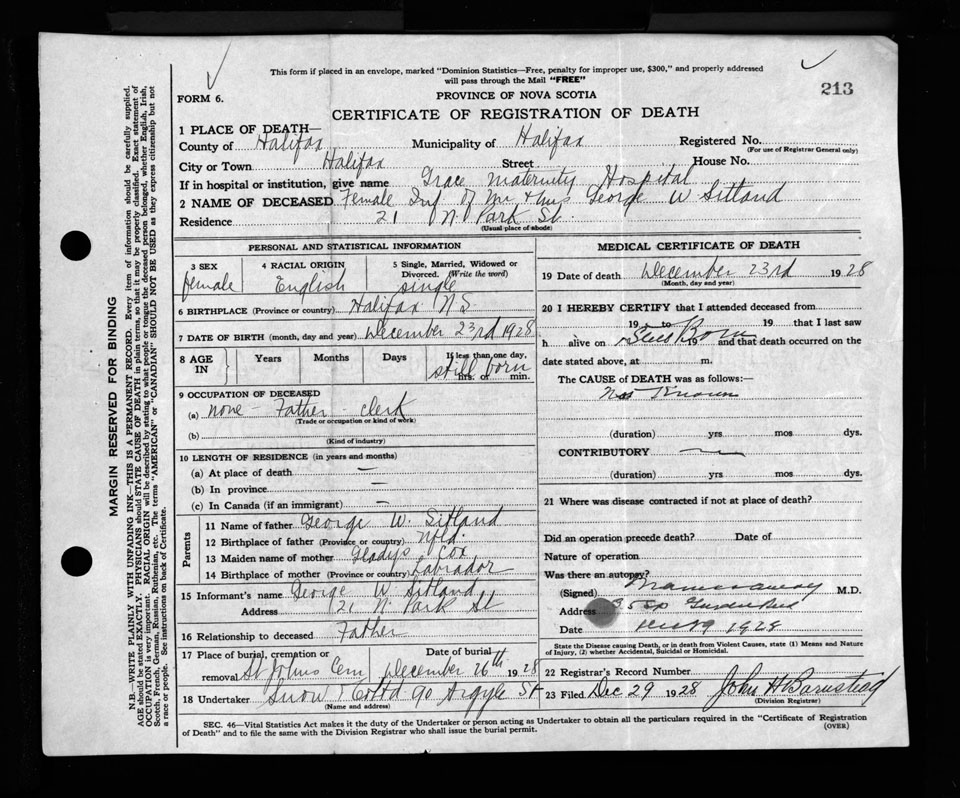 This form if placed in an envelope, marked "Dominion Statistics—Free, penalty for improper use, $300," and properly addressed
will pass through the Mail "FREE"
213
FORM 6.
PROVINCE OF NOVA SCOTIA
CERTIFICATE OF REGISTRATION OF DEATH
1 PLACE OF DEATH—
County of Halifax Municipality of Halifax Registered No.
(For use of Registrar General only)
City or Town Halifax Street House No.
If in hospital or institution, give name Grace Maternity Hospital
2 NAME OF DECEASED Female Inf of Mr & Mrs George W Sitland
Residence 21 N. Park St.
(Usual place of abode)
PERSONAL AND STATISTICAL INFORMATION
3 SEX 4 RACIAL ORIGIN 5 Single, Married, Widowed or
Divorced. (Write the word)
female English single
6 BIRTHPLACE (Province or country) Halifax N S
7 DATE OF BIRTH (month, day and year) December 23rd 1928
8 AGE IN Years Months Days If less than one day,
hrs. or min.
still born
9 OCCUPATION OF DECEASED
(a) none - Father - clerk
(Trade or occupation or kind of work)
(b)
(Kind of industry)
10 LENGTH OF RESIDENCE (in years and months)
(a) At place of death —
(b) In province —
(c) In Canada (if an immigrant) —
Parents
11 Name of father George W. Sitland
12 Birthplace of father (Province or country) Nfld.
13 Maiden name of mother Gladys Cox
14 Birthplace of mother (Province or country) Labrador
15 Informant's name George W Sitland
Address 21 N. Park St
16 Relationship to deceased Father
17 Place of burial, cremation or removal Date of burial
St Johns Cem December 26th 1928
18 Undertaker Snow & Co Ltd 90 Argyle St
(Name and address)
MEDICAL CERTIFICATE OF DEATH
19 Date of death December 23rd 1928
(Month, day and year)
20 I HEREBY CERTIFY that I attended deceased from
19 to 19 that I last saw
h alive on Still Born 19 and that death occurred on the
date stated above, at m.
The CAUSE of DEATH was as follows:—
Not Known
(duration) yrs mos dys.
CONTRIBUTORY —
(duration) yrs. mos dys.
21 Where was disease contracted if not at place of death?
Did an operation precede death? Date of
Nature of operation
Was there an autopsy?
(Signed) M.D.
Address
Date 1928
State the Disease causing Death, or in death from Violent Causes, state (1) Means and Nature
of Injury, (2) whether Accidental, Suicidal or Homicidal.
22 Registrar's Record Number
23 Filed Dec 29 1928 John H Barnstead
(Division Registrar)
SEC. 46—Vital Statistics Act makes it the duty of the Undertaker or person acting as Undertaker to obtain all the particulars required in the "Certificate of Registration
of Death" and to file the same with the Division Registrar who shall issue the burial permit.
(OVER)
MARGIN RESERVED FOR BINDING
N.B.—WRITE PLAINLY WITH UNFADING INK—THIS IS A PERMANENT RECORD. Every item of information should be carefully supplied.
AGE should be stated EXACTLY. PHYSICIANS should STATE CAUSE OF DEATH in plain terms, so that it may be properly classified. Exact statement of
OCCUPATION is very important. RACIAL ORIGIN will be described by stating to what people or tongue the deceased person belonged, whether English, Irish,
Scotch, French, German, Russian, Ruthenian, etc. The terms "AMERICAN" or "CANADIAN" SHOULD NOT BE USED as they express citizenship but not
a race or people. See instructions on back of Certificate.